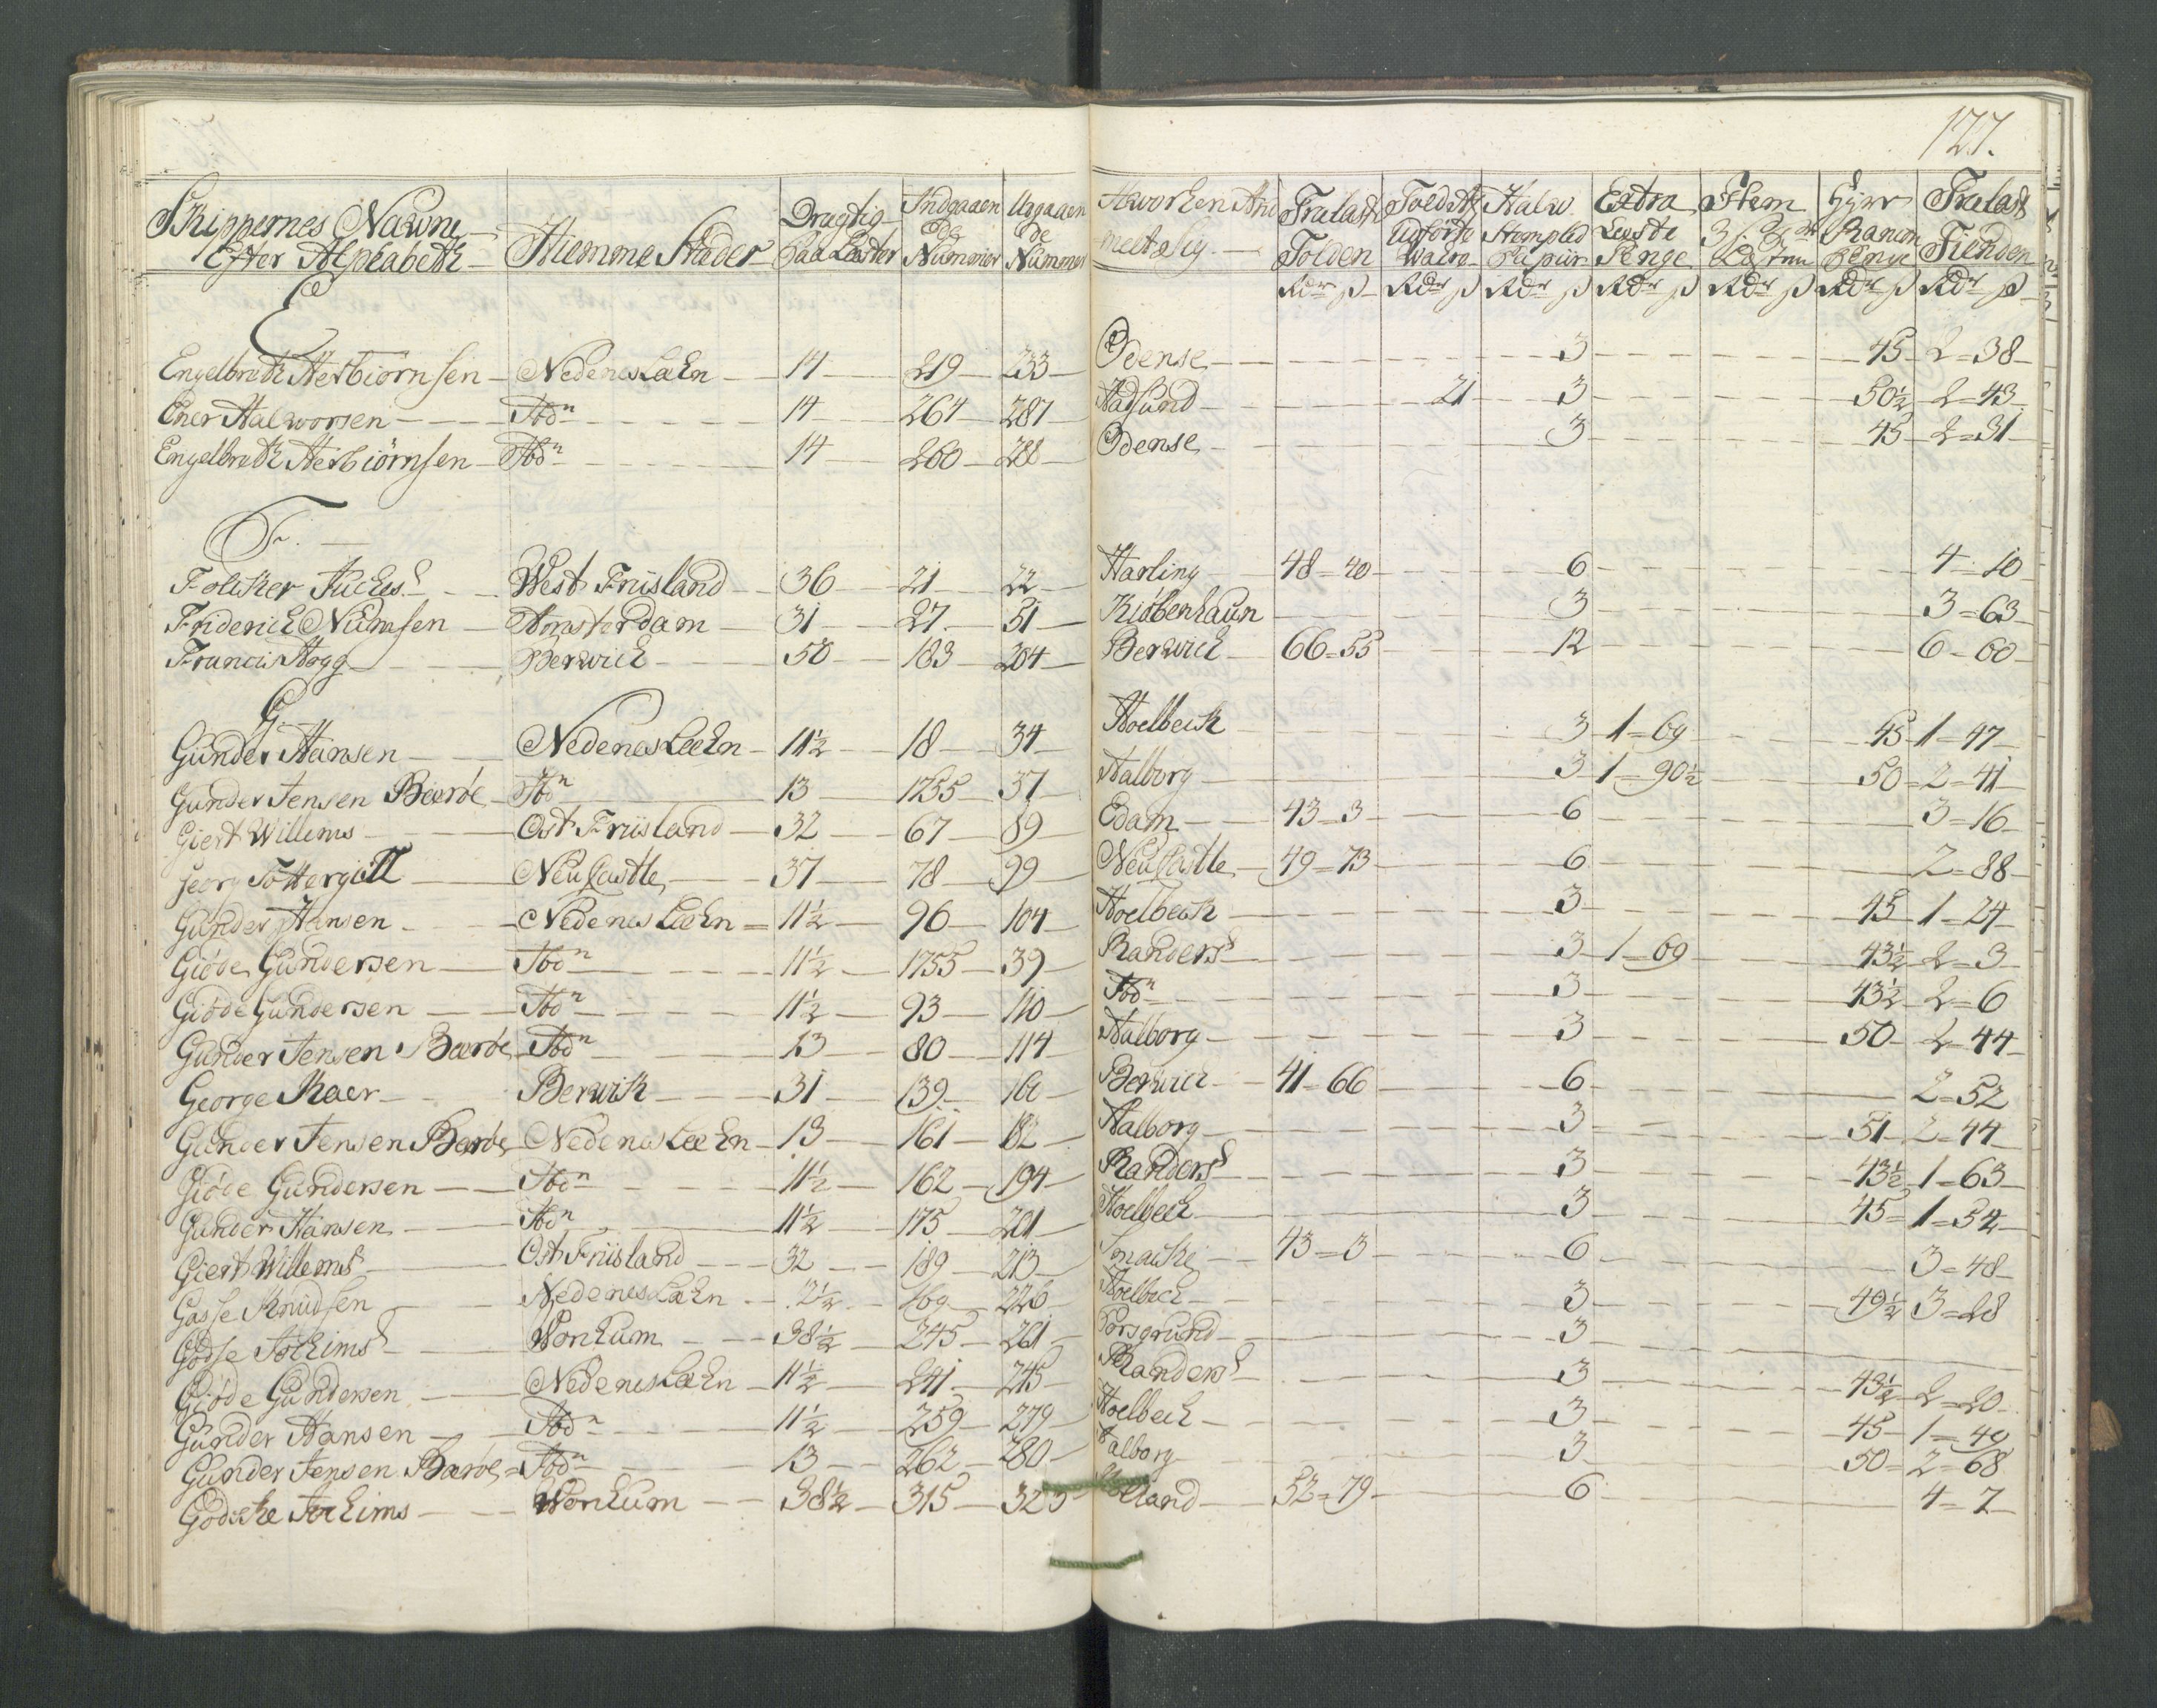 127.
Skippernes Nawne Efter Alphabeth | Hiemme Stæder | Drægtig Paa Læster | Indgaaende Nummer | Udgaaende Nummer | Trælast Tolden Rdr ß | Told Af Udförte Wahre Rdr ß | Stempled Papiir Rdr ß | Extra Læste Penge Rdr ß | Rdr ß | Rdr ß | Trælast Tienden Rdr ß
E
Engelbreth Herbiörnsen — Nedenes Læhn — 14 — 219 — 233 — Odense — 3 — 45 — 2=38
Ener Halworsen — Ibdn — 14 — 264 — 287 — Hadsund — 21 — 3 — 50½ — 2=43
Engelbreth Herbiörnsen — Ibdn — 14 — 260 — 288 — Odense — 3 — 45 — 2=31
F.
Folcher — West Friisland — 36 — 21 — 22 — Harling — 48=40 — 6 — 4=10
Friderich — Amsterdam — 31 — 27 — 51 — Kiöbenhaun — 3 — 3=63
Francis Hogg — Berwich — 50 — 183 — 204 — Berwich — 66=55 — 12 — 6=60
G.
Gunder Hansen — Nedenes Læhn — 11½ — 18 — 34 — Hoelbech — 3 — 1=69 — 45 — 1=47
Gunder Jensen Boeröe — Ibdn — 13 — 1755 — 37 — Aalborg — 3 — 1=90½ — 50 — 2=41
Giert Willems — Ost Friisland — 32 — 67 — 89 — Edam — 43=3 — 6 — 3=16
Georg Fottergill — NeuCastle — 37 — 78 — 99 — NeuCastle — 49=73 — 6 — 2=88
Gunder Hansen — Nedenes Læhn — 11½ — 96 — 104 — Hoelbech — 3 — 45 — 1=24
Giöde Gundersen — Ibdn — 11½ — 1755 — 39 — Randers — 3 — 1=69 — 43½ — 2=3
Giöde Gundersen — Ibdn — 11½ — 93 — 110 — Ibdn — 3 — 43½ — 2=6
Gunder Jensen Boeröe — Ibdn — 13 — 80 — 114 — Aalborg — 3 — 50 — 2=44
George Kaer — Berwick — 31 — 139 — 160 — Berwich — 41=66 — 6 — 2=52
Gunder Jensen Boeröe — Nedenes Læhn — 13 — 161 — 182 — Aalborg — 3 — 51 — 2=44
Giöde Gundersen — Ibdn — 11½ — 162 — 194 — Randers — 3 — 43½ — 1=63
Gunder Hansen — Ibdn — 11½ — 175 — 201 — Hoelbech — 3 — 45 — 1=54
Giert Willems — Ost Friisland — 32 — 189 — 213 — 43=3 — 6 — 3=48
Gasse Knudsen — Nedenes Læhn — 169 — 226 — Hoelbech — 3 — 49½ — 3=28
Jochims — Workum — 38½ — 245 — 261 — Porsgrund — 3
Giöde Gundersen — Nedenes Læhn — 11½ — 241 — 245 — Randers — 3 — 43½ — 2=20
Gunder Hansen — Ibdn — 11½ — 259 — 279 — Hoelbech — 3 — 45 — 1=49
Gunder Jensen Boeröe — Ibdn — 13 — 262 — 280 — Aalborg — 3 — 50 — 2=68
Jochims — Workum — 38½ — 315 — 52=79 — 6 — 4=7